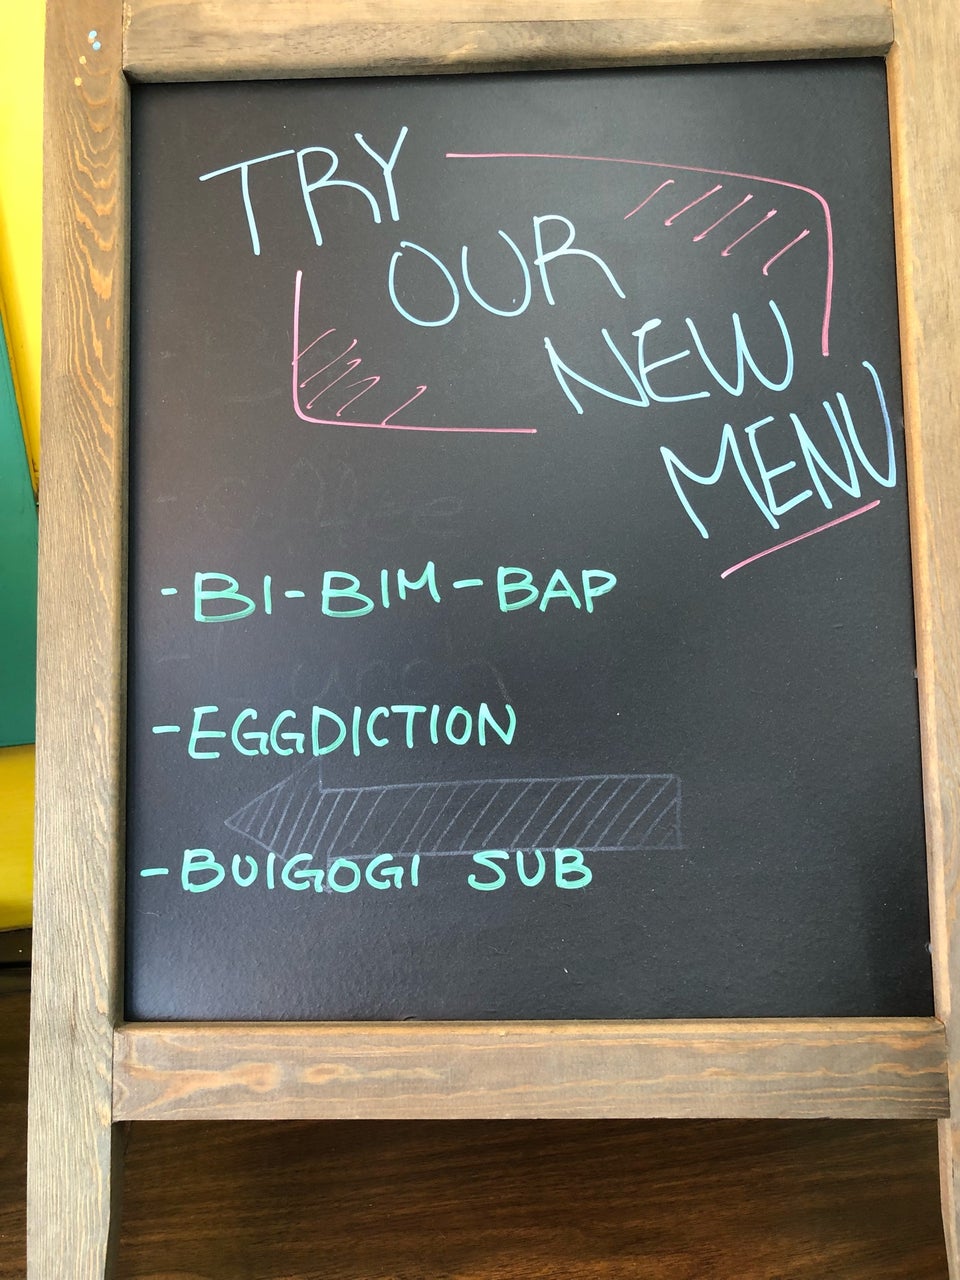 TRY
OUR
NEW
MENU
-BI-BIM-BAP
-EGGDICTION
-BUIGOGI SUB